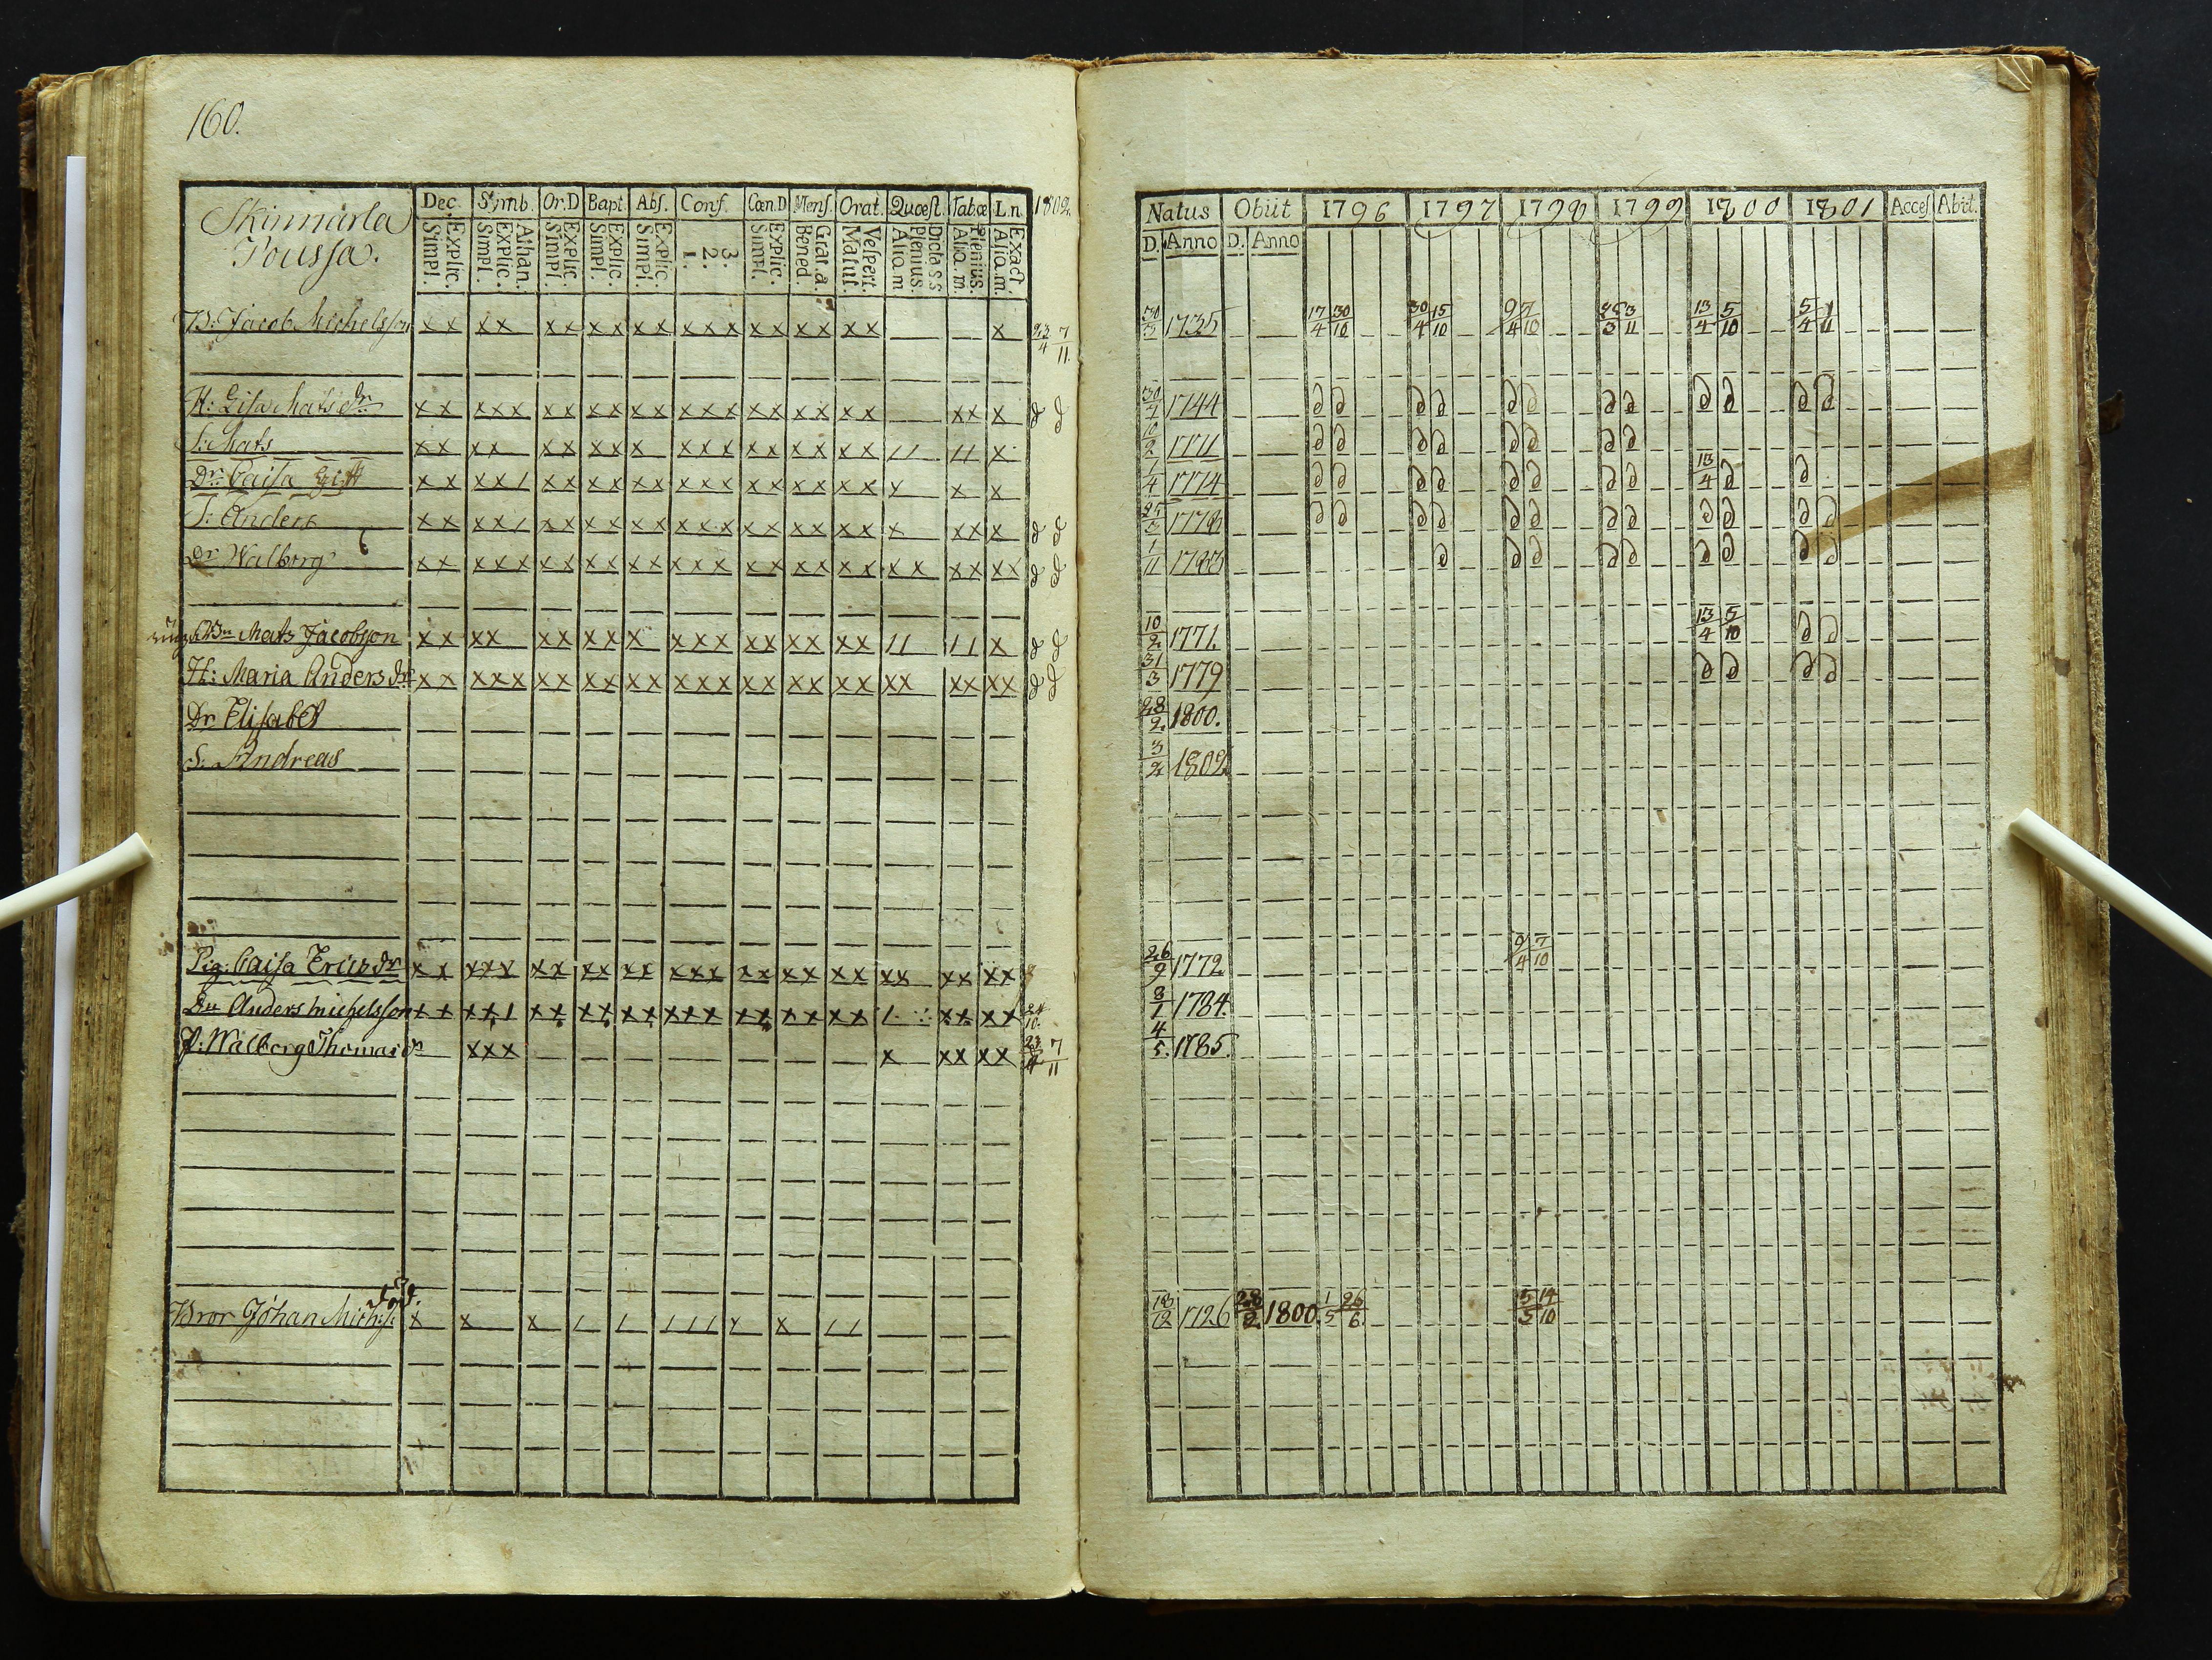 160.
Skinnarla
Poussa.
Dec. Simb. Or.D Bapt. Abs. Conf. Cœn.D Mens. Orat. Quœst. Tabœ L.n. 1802.
Explic. Simpl. Athan. Explic. Simpl. Explic. Simpl. Explic. Simpl. Explic. Simpl. 3. 2. 1. Explic. Simpl. Grat. a. Bened. Vespert. Matut. Dicta S S Plenius. Aliq. m. Plenius. Aliq. m. Exact. Aliq. m.
B: Jacob Michelsson xx xx xx xx xx xxx xx xx xx x 23/4 7/11
H: Lisa Mats dr xx xxx xx xx xx xxx xx xx xx xx x
S: Mats xx xx xx xx x xxx xx xx xx // // x
Dr: Caisa gift xx xx/ xx xx xx xxx xx xx xx x x x
S: Anders xx xx/ xx xx xx xxx xx xx xx x xx x
Dr Walborg xx xxx xx xx xx xxx xx xx xx xx xx xx
Bn Mats Jacobsson xx xx xx xx x xxx xx xx xx // // x
H: Maria Anders dr xx xxx xx xx xx xxx xx xx xx xx xx xx
Dr Elisabet
S. Andreas
Pig: Caisa Ericsdr xx xxx xx xx xx xxx xx xx xx xx xx xx
Dn Anders Michelsson xx xx/ xx xx xx xxx xx xx xx / xx xx
P: Walborg Thomasdr xxx x xx xx 7/11
död.
Bror Johan Michs: x x x / / /// x x //
Natus Obiit 1796 1797 1798 1799 1800 1801 Acces Abiit.
D. Anno D. Anno
1735 17/4 30/10 30/4 15/10 9/4 7/10 3/11 13/4 5/10 5/4 1/11
1744
1771
1/4 1774 13/4
1778
1/11 1783
10/2 1771. 13/4 5/10
31/3 1779
28/2 1800.
3/2 1802
26/9 1772 9/4 7/10
8/1 1784.
4/5. 1785.
18/12 1726 28/2 1800. 1/5 26/6 5/5 14/10